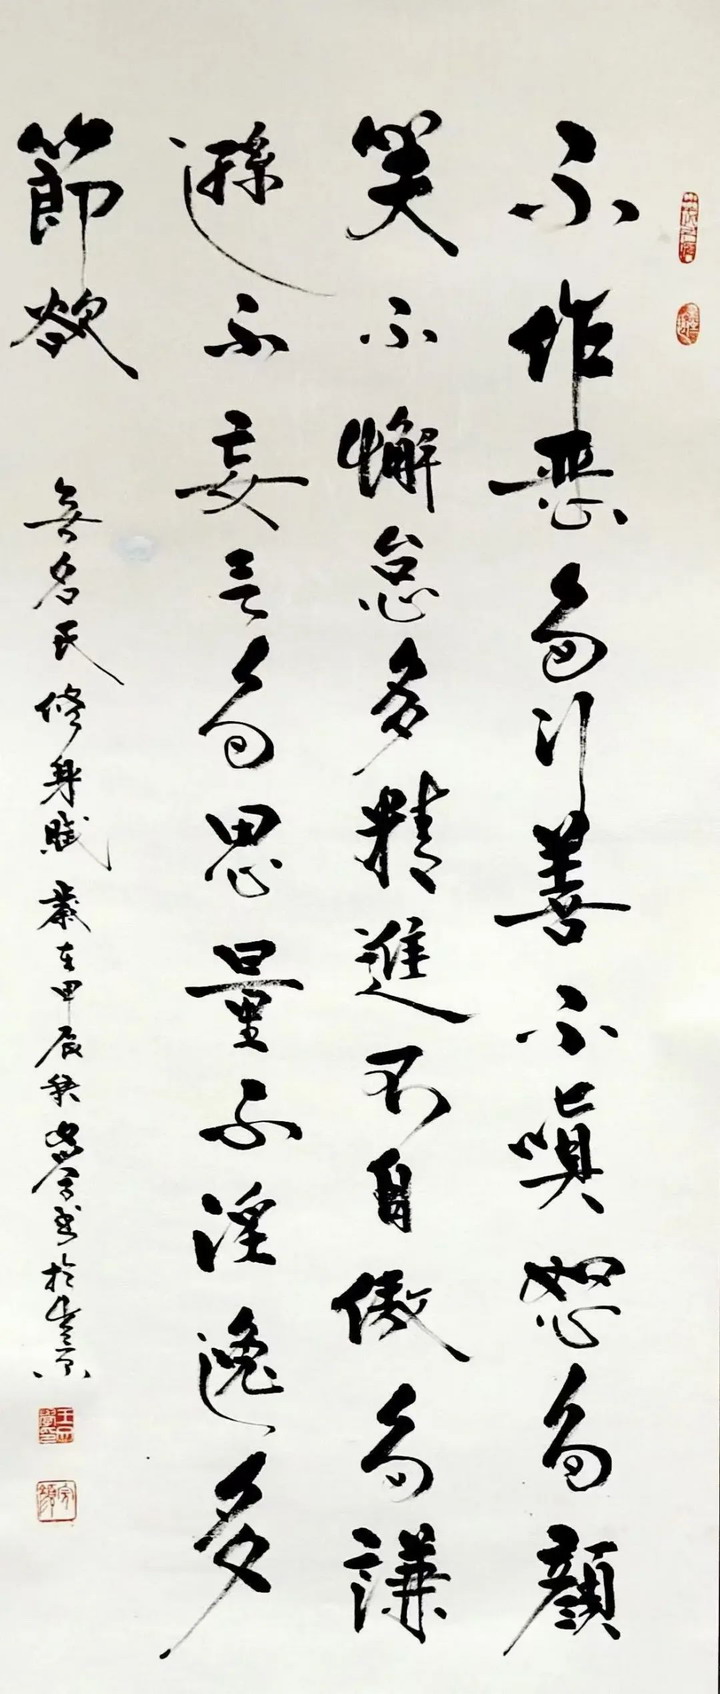 不作惡多行善不嗔怒多顏
笑不懈怠多精進不自傲多謙
遜不妄言多思量不淫逸多
節欲
無名氏修身賦歲在甲辰秋書於京